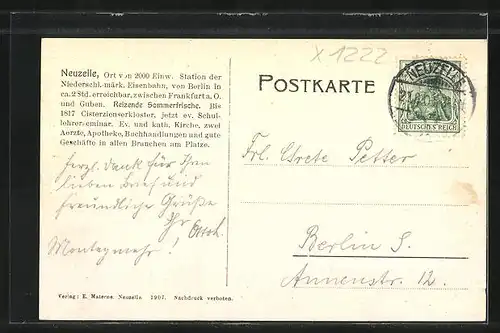 X1222
Neuzelle, Ort von 2000 Einw. Station der
Niederschl.-märk. Eisenbahn, von Berlin in
ca. 2 Std. erreichbar, zwischen Frankfurt a. O.
und Guben. Reizende Sommerfrische. Bis
1817 Cisterzienserkloster, jetzt ev. Schul-
lehrerseminar. Ev. und kath. Kirche, zwei
Aerzte, Apotheke, Buchhandlungen und gute
Geschäfte in allen Branchen am Platze.
POSTKARTE
NEUZELLE
DEUTSCHES REICH
Herzl. Dank für Ihren
lieben Brief und
freundliche Grüße
Ihr
Montag mehr!
Frl. Grete Petter
Berlin S.
Annenstr. 12.
Verlag: E. Materne, Neuzelle. 1907. Nachdruck verboten.